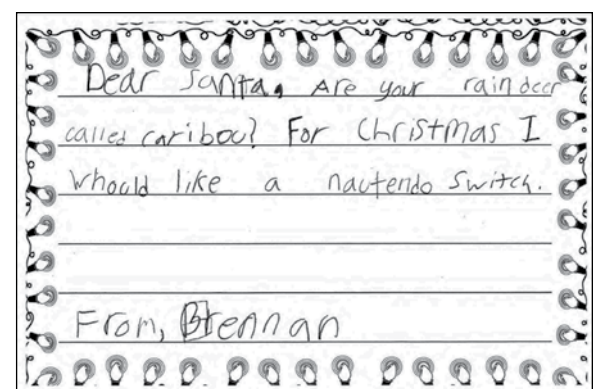 Dear Santa, Are your rain deer
called caribou? For Christmas I
whould like a nautendo switch.
From, Brennan